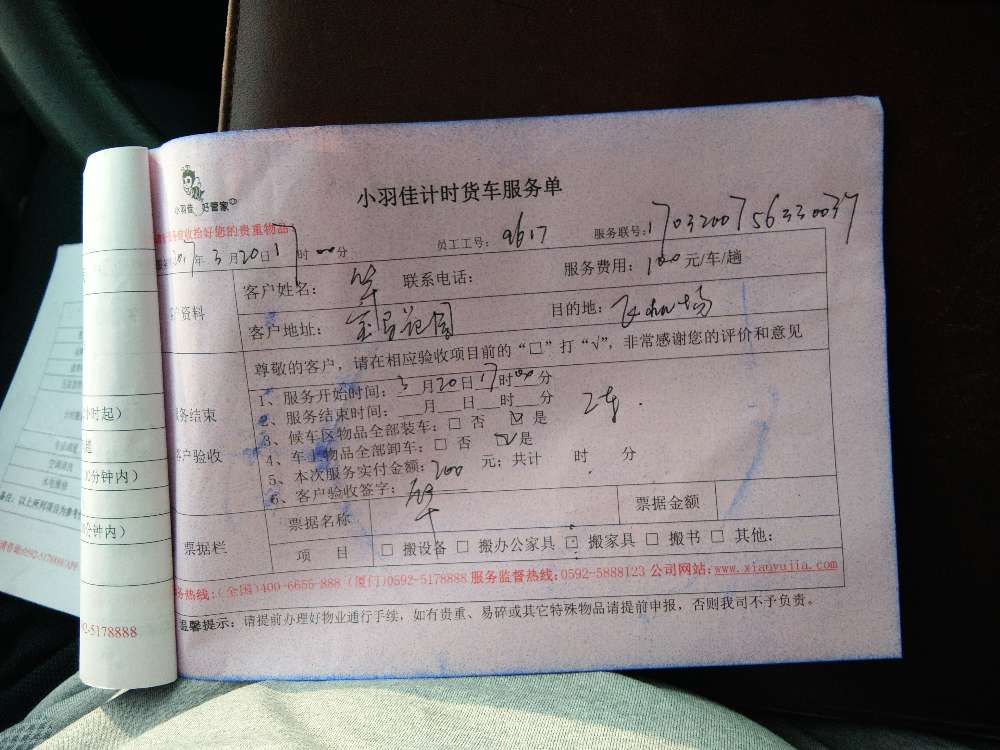 小羽佳 好管家
小羽佳计时货车服务单
收拾好您的贵重物品
年3月20日17时00分
员工工号：9617
服务联号：1703200756330037
客户资料
客户姓名：
联系电话：
服务费用：100元/车/趟
客户地址：
目的地：
尊敬的客户，请在相应验收项目前的“□”打“√”，非常感谢您的评价和意见
服务结束
客户验收
1、服务开始时间：3月20日17时00分
2、服务结束时间：___月___日___时___分
3、候车区物品全部装车：□ 否 ☑ 是
2车.
4、车上物品全部卸车：□ 否 ☑ 是
5、本次服务实付金额：200元；共计 时 分
6、客户验收签字：
票据栏
票据名称
票据金额
项 目
□ 搬设备 □ 搬办公家具 □ 搬家具 □ 搬书 □ 其他：
务热线：(全国)400-6655-888 (厦门)0592-5178888 服务监督热线：0592-5888123 公司网站：www.xiaoyujia.com
温馨提示：请提前办理好物业通行手续，如有贵重、易碎或其它特殊物品请提前申报，否则我司不予负责。
小时起）
0分钟内）
分钟内）
2-5178888